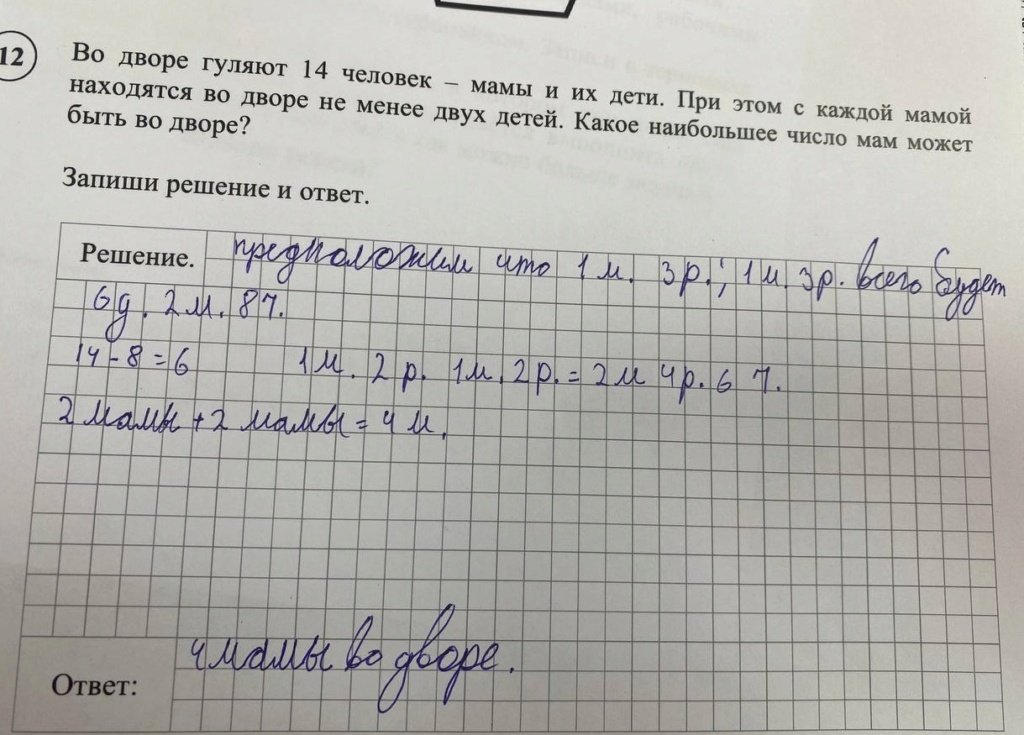 12
Во дворе гуляют 14 человек – мамы и их дети. При этом с каждой мамой
находятся во дворе не менее двух детей. Какое наибольшее число мам может
быть во дворе?
Запиши решение и ответ.
Решение. предположим что 1 м. 3 р.; 1 м. 3 р. всего будет
6 д. 2 м. 8 ч.
14 - 8 = 6 1 м. 2 р. 1 м. 2 р. = 2 м 4 р. 6 ч.
2 мамы + 2 мамы = 4 м.
Ответ: 4 мамы во дворе.